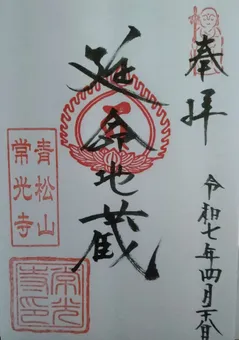 奉拝
令和七年四月 日
延命地蔵
青松山
常光寺
常光
寺印